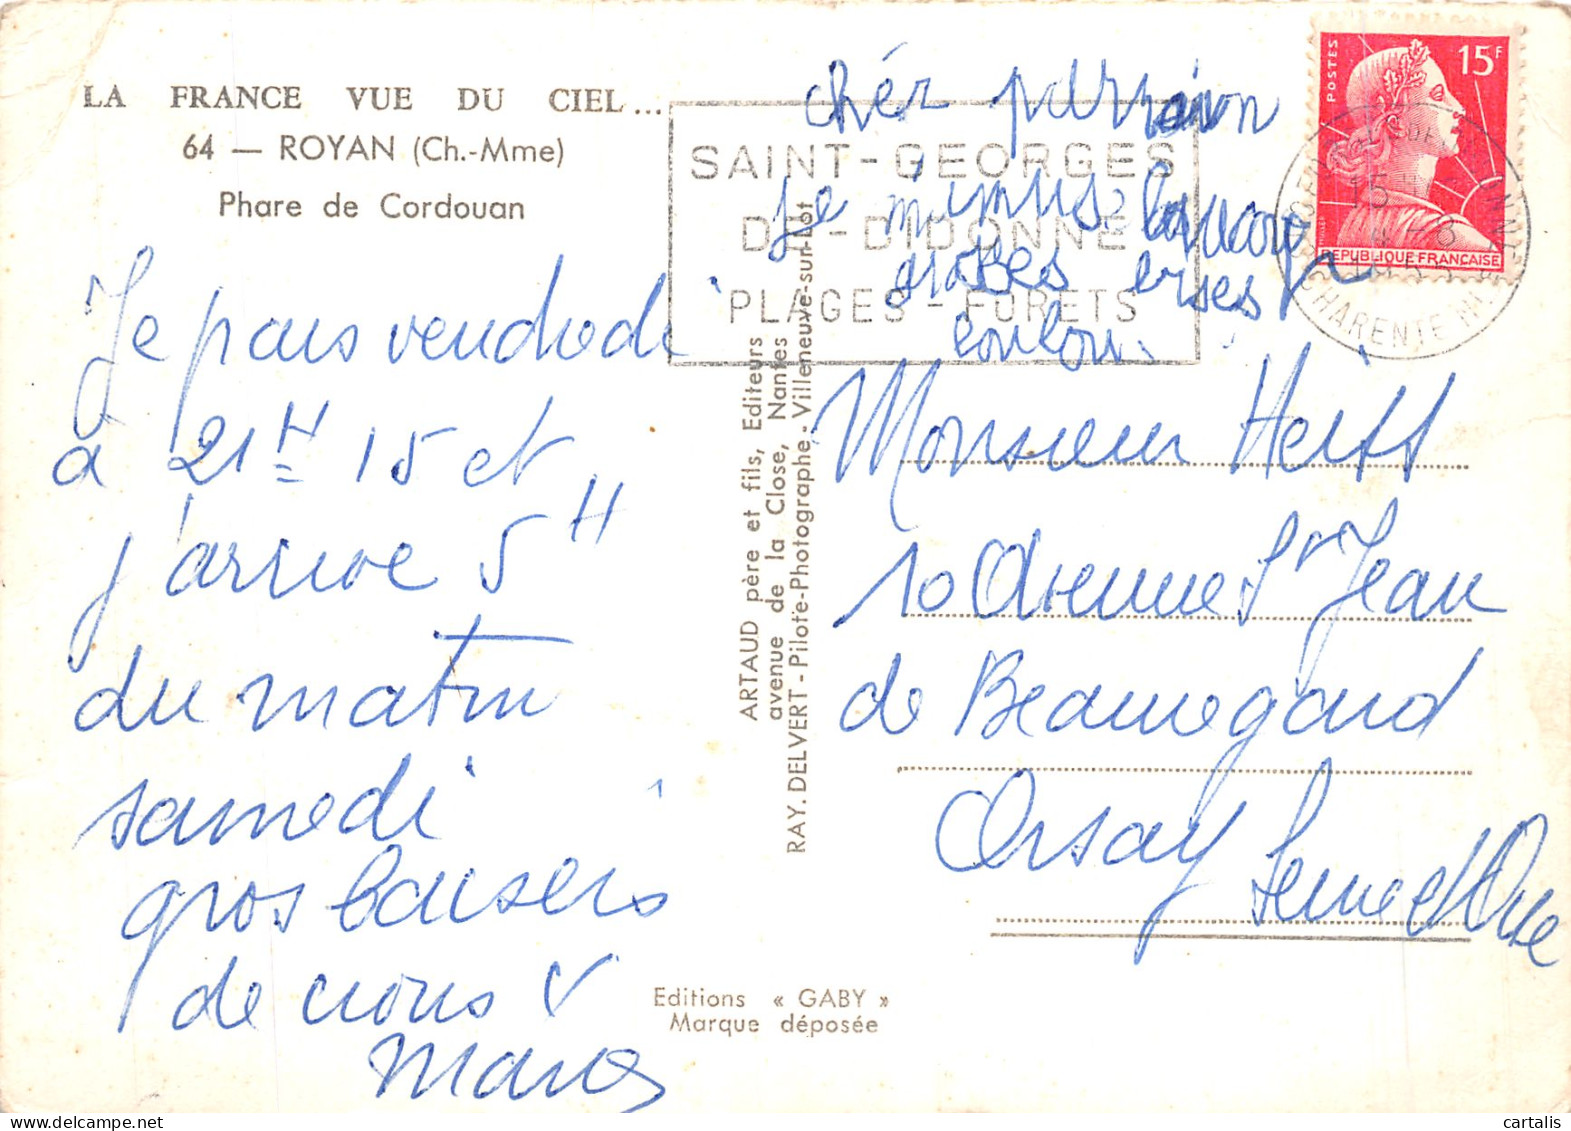 LA FRANCE VUE DU CIEL...
64 — ROYAN (Ch.-Mme)
Phare de Cordouan
Je pars vendredi
à 21H 15 et
j'arrive 5H
du matin
samedi
gros baisers
de nous
chér parrain
Je
groses
SAINT-GEORGES
DE-DIDONNE
PLAGES - FORETS
POSTES
15F
REPUBLIQUE FRANÇAISE
CHARENTE
ARTAUD père et fils, Editeurs
avenue de la Close, Nantes
RAY. DELVERT - Pilote-Photographe - Villeneuve-sur-Lot
Monsieur
10 Avenue St Jean
de Beauregard
Orsay
Seine et Oise
Editions « GABY »
Marque déposée
cartalis